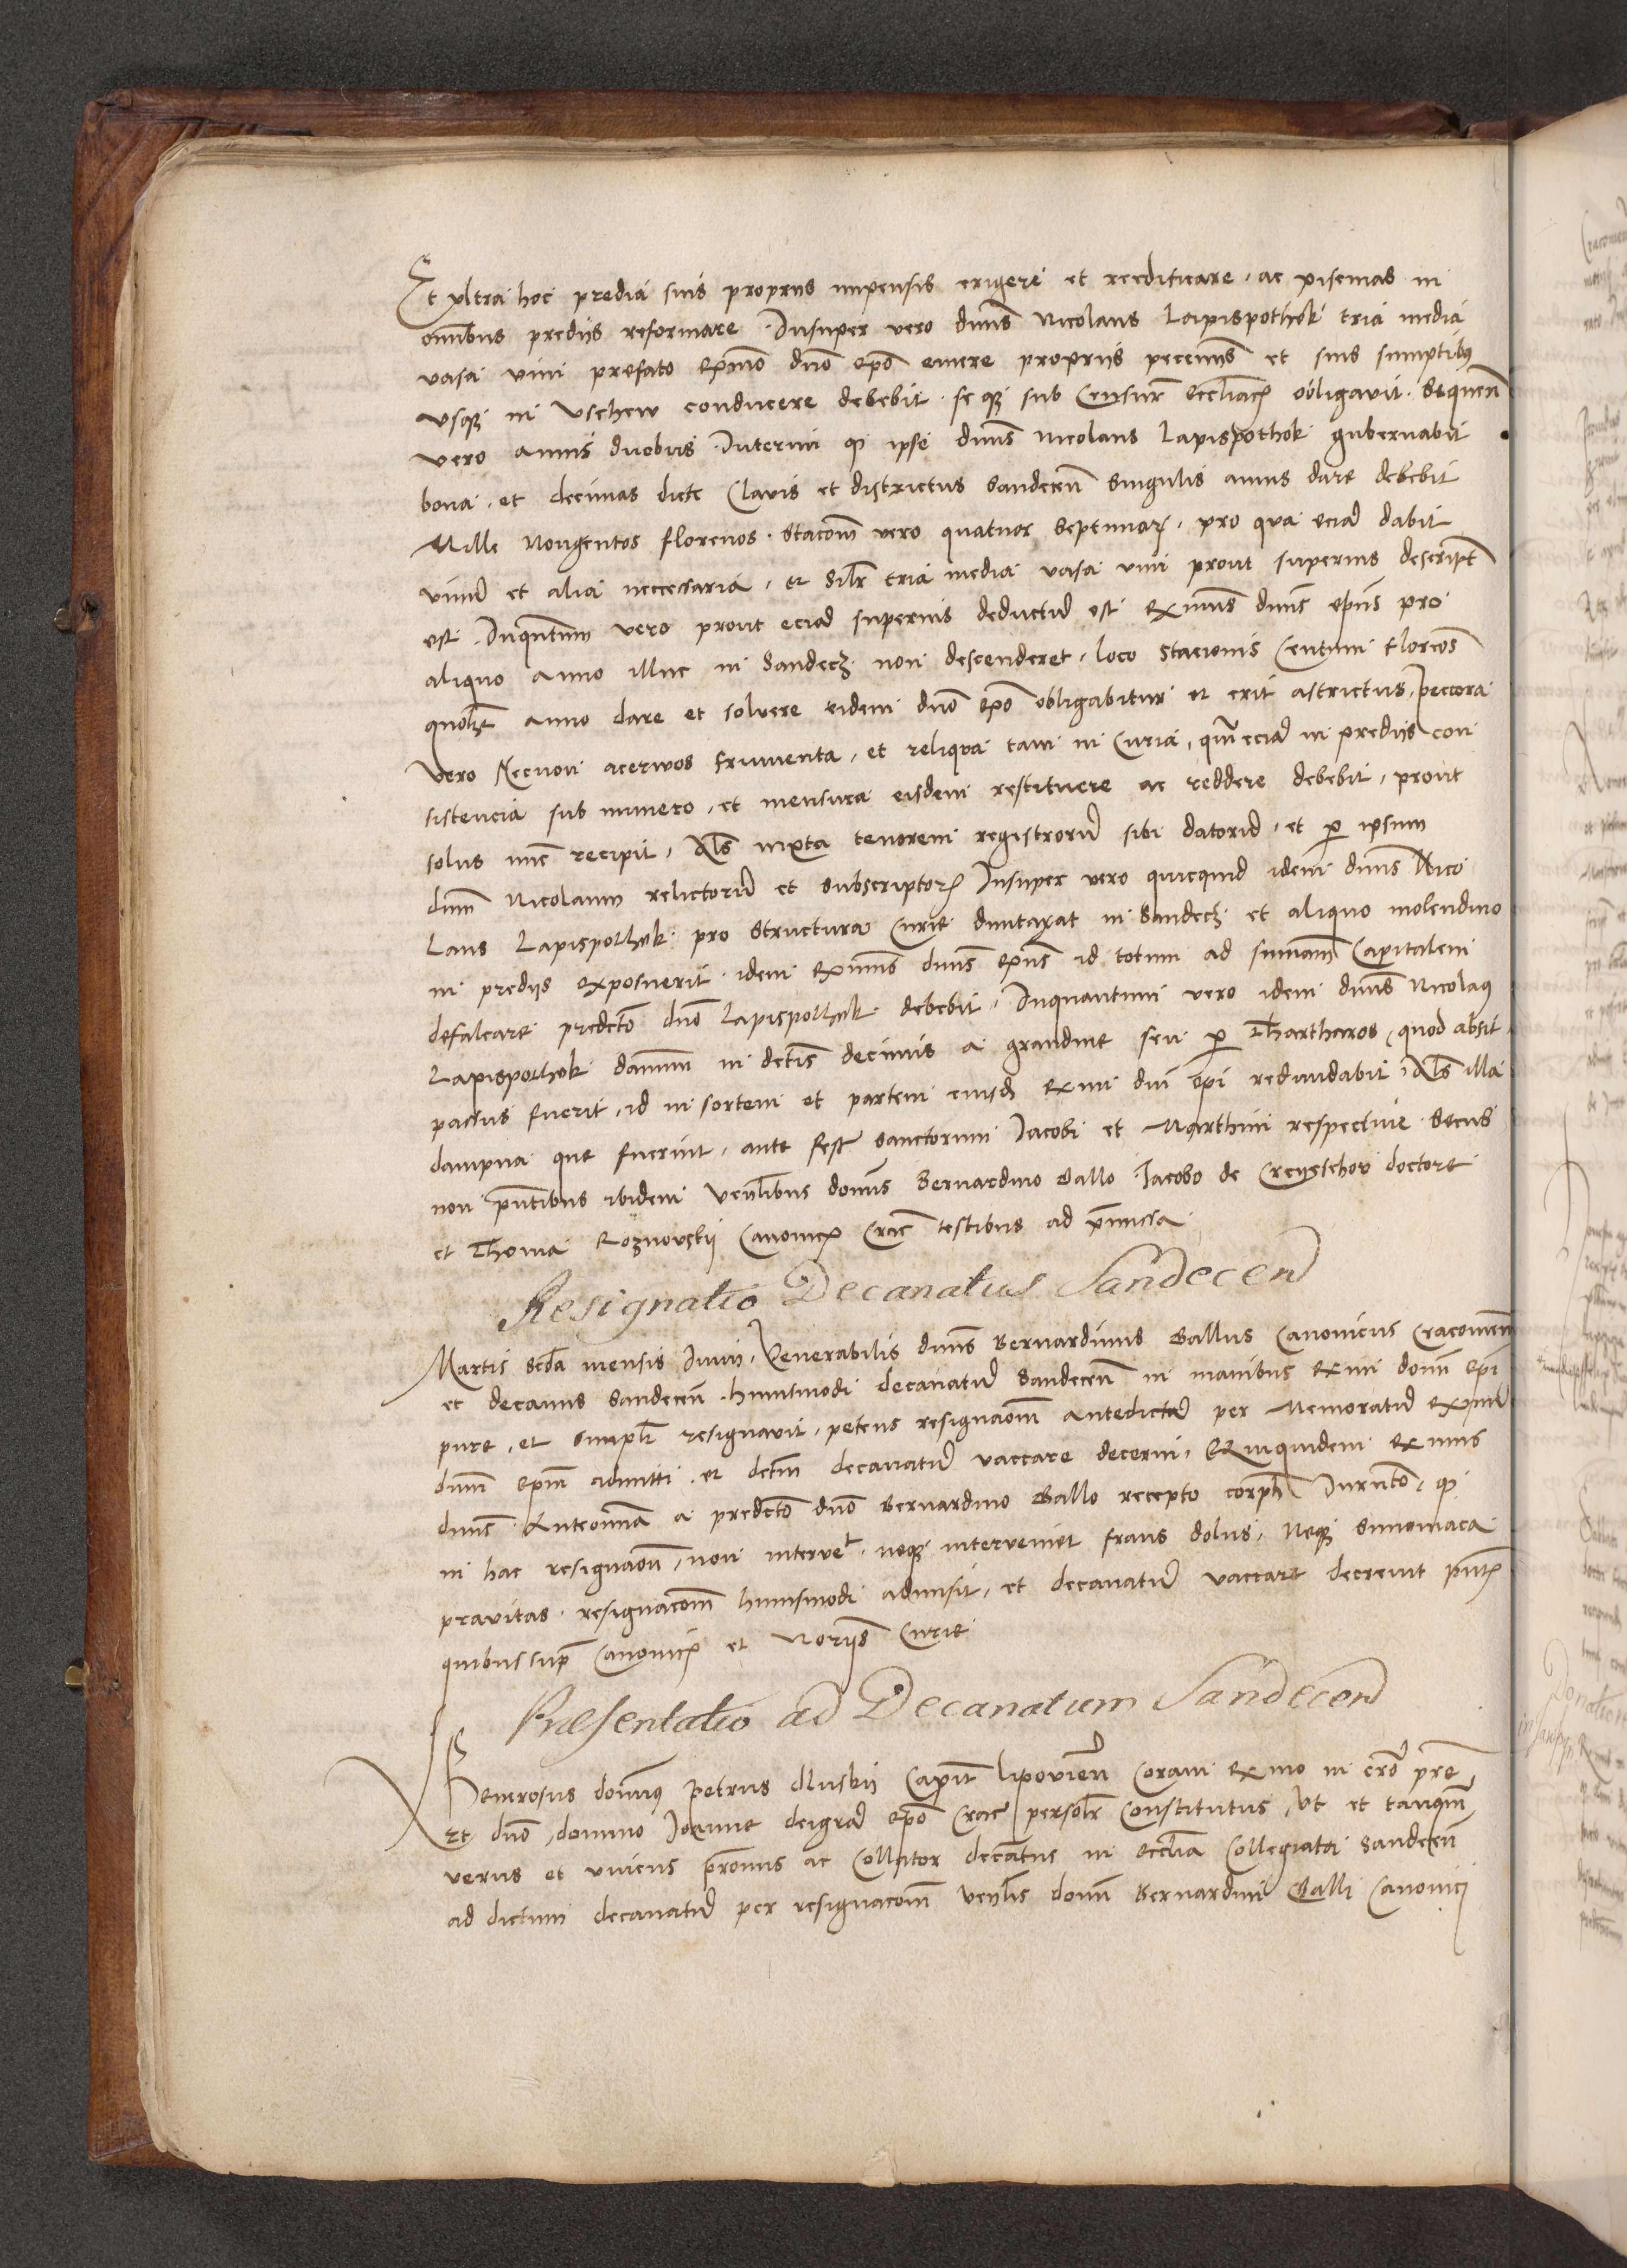 Et vltra hoc predia suis proprijs impensis erigere et reedificare, ac piscinas in
omnibus predijs reformare. Insuper vero dnus Nicolaus Lapispothok tria media
vasa vini prefato Rxmo dno epo emere proprijs pecunijs et suis sumptibus
vsque in Vschew conducere debebit. se que sub Censuris ecclesiacis obligavit. Sequen
vero annis duobus. Interim qz ipse dnus Nicolaus Lapispothok gubernabit
bona, et decimas dicte Clavis et districtus Sandecen singulis annis dare debebit
Mille Nongentos florenos. Stacom vero quatuor septimanarum, pro qua eciam dabit
vinum et alia neccessaria, et Silr tria media vasa vini prout superius descript
est. Inquntum vero prout eciam superius deductum est Rxmus dnus epus pro
aliquo anno illuc in Sandecz non descenderet, loco stacionis Centum florenos
quolibet anno dare et solvere eidem dno epo obligabitur et erit astrictus, peccora
vero Necnon acerwos frumenta, et reliqua tam in Curia, quam eciam in predijs con
sistencia sub numero, et mensura eisdem restituere ac reddere debebit, prout
solus nunc recipit, Als iuxta tenorem registrorum sibi datorum, et per ipsum
dnum Nicolaum relictorum et subscriptorum Insuper vero quicquid idem dnus Nico
laus Lapispothok pro structura Curie duntaxat in Sandecz et aliquo molendino
in predijs exposuerit idem Rxmus dnus epus id totum ad summam Capitalem
defalcare predicto dno Lapispothok debebit. Inquantum vero idem dnus Nicolaus
Lapispothok damnum in dctis decimis a grandine seu per Thartharos, quod absit
passus fuerit, id in sortem et partem eiusdem Rxmi dni epi redundabit, Als illa
dampna que fuerint, ante festa sanctorum Iacobi et Marthini respective. Secus
non pntibus ibidem Venlibus domnis Bernardino Gallo Iacobo de Erczeschow doctore
et Thoma Roznovskij Canonicis Crac testibus ad premissa
Resignatio Decanatus Sandecen
Martis Scda mensis Iunij, Venerabilis dnus Bernardinus Gallus Canonicus Cracoviens
et decanus Sandecen. huiusmodi decanatum Sandecen in manibus Rxmi domni Epi
pure, et simplr resignavit, petens resignaom antedictam per Memoratum Rxmum
dnum Epum admitti, et dctm decanatum vaccare decerni, Quiquidem Rxmus
dnus Anteomnia a predcto dno Bernardino Gallo recepto corpli Iurnto, qz
in hac resignaom, non intervet, neque interveniet fraus dolus, Neque Simoniaca
pravitas. resignacom huiusmodi admisit, et decanatum vaccare decrevit pntibus
quibus supra Canonicis et Norijs Curie
Præsentatio ad Decanatum Sandecen
Generosus domnus Petrus dluskij Capit lipovien Coram Rxmo in cro pre
Et dno, domino Ioanne deigra epo Crac personlr Constitutus, Vt et tanqm
verus et vnicus pronus ac Collator decatus in ecclia Collegiata Sandecen
ad dictum decanatum per resignacom Venlis domni Bernardini Galli Canonici